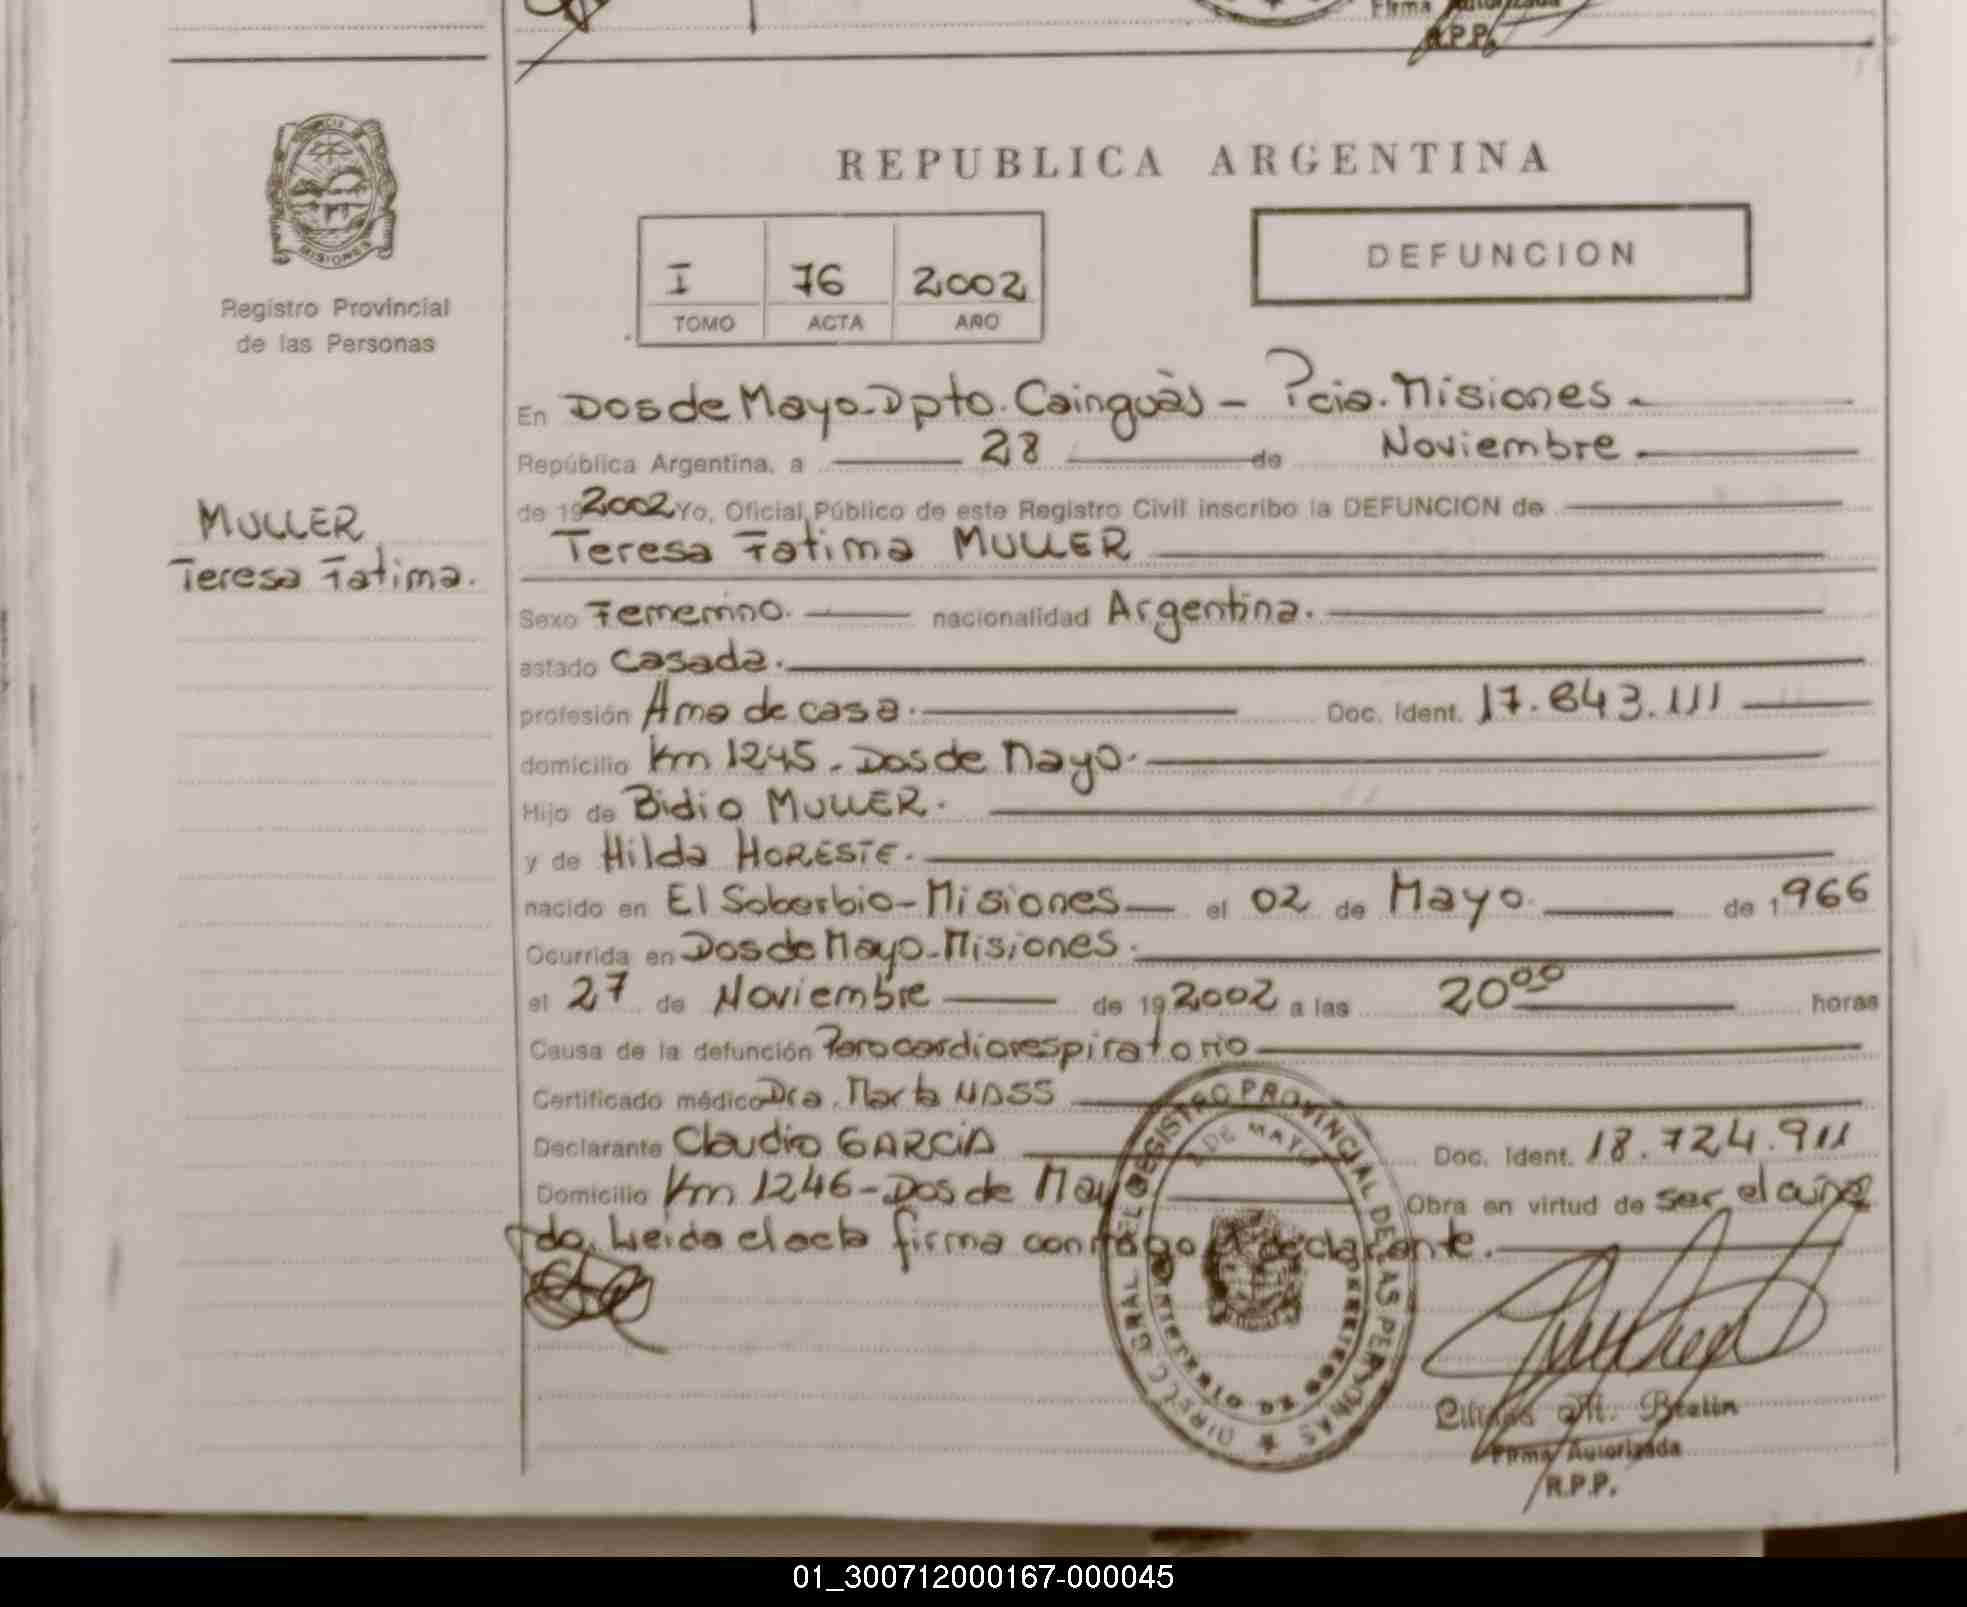 Firma Autorizada
R.P.P.
PROVINCIA
MISIONES
Registro Provincial
de las Personas
MULLER
Teresa Fatima.
REPUBLICA ARGENTINA
I 76 2002
TOMO ACTA AÑO
DEFUNCION
En Dos de Mayo-Dpto. Cainguàs - Pcia. Misiones.
República Argentina, a 28 de Noviembre
de 192002 Yo, Oficial Público de este Registro Civil inscribo la DEFUNCION de
Teresa Fatima MULLER
Sexo Femenino. nacionalidad Argentina.
estado casada.
profesión Ama de casa. Doc. Ident. 17.843.111
domicilio Km 1245. Dos de Mayo.
Hijo de Bidio MULLER.
y de Hilda HORESTE.
nacido en El Soberbio-Misiones el 02 de Mayo de 1966
Ocurrida en Dos de Mayo-Misiones.
el 27 de Noviembre de 192002 a las 20°° horas
Causa de la defunción Parocardiorespiratorio
Certificado médico Dra. Marta NASS
Declarante Claudio GARCIA Doc. Ident. 18.724.911
Domicilio Km 1246-Dos de Mayo Obra en virtud de ser el
do. Leida el acta firma conmigo el declarante.
DIRECC. GRAL. DEL REGISTRO PROVINCIAL DE LAS PERSONAS
2 DE MAYO
M. Firma Autorizada
R.P.P.
01_300712000167-000045